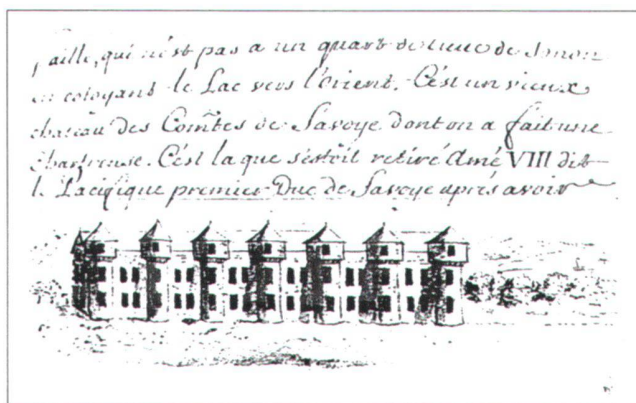 paille, qui n'est pas a un quart de lieue de
en cotoyant le Lac vers l'orient. C'est un vieux
chateau des Comtes de Savoye dont on a fait une
chartreuse. C'est la que s'estoit retiré Amé VIII dit
le Pacifique premier Duc de Savoye aprés avoir